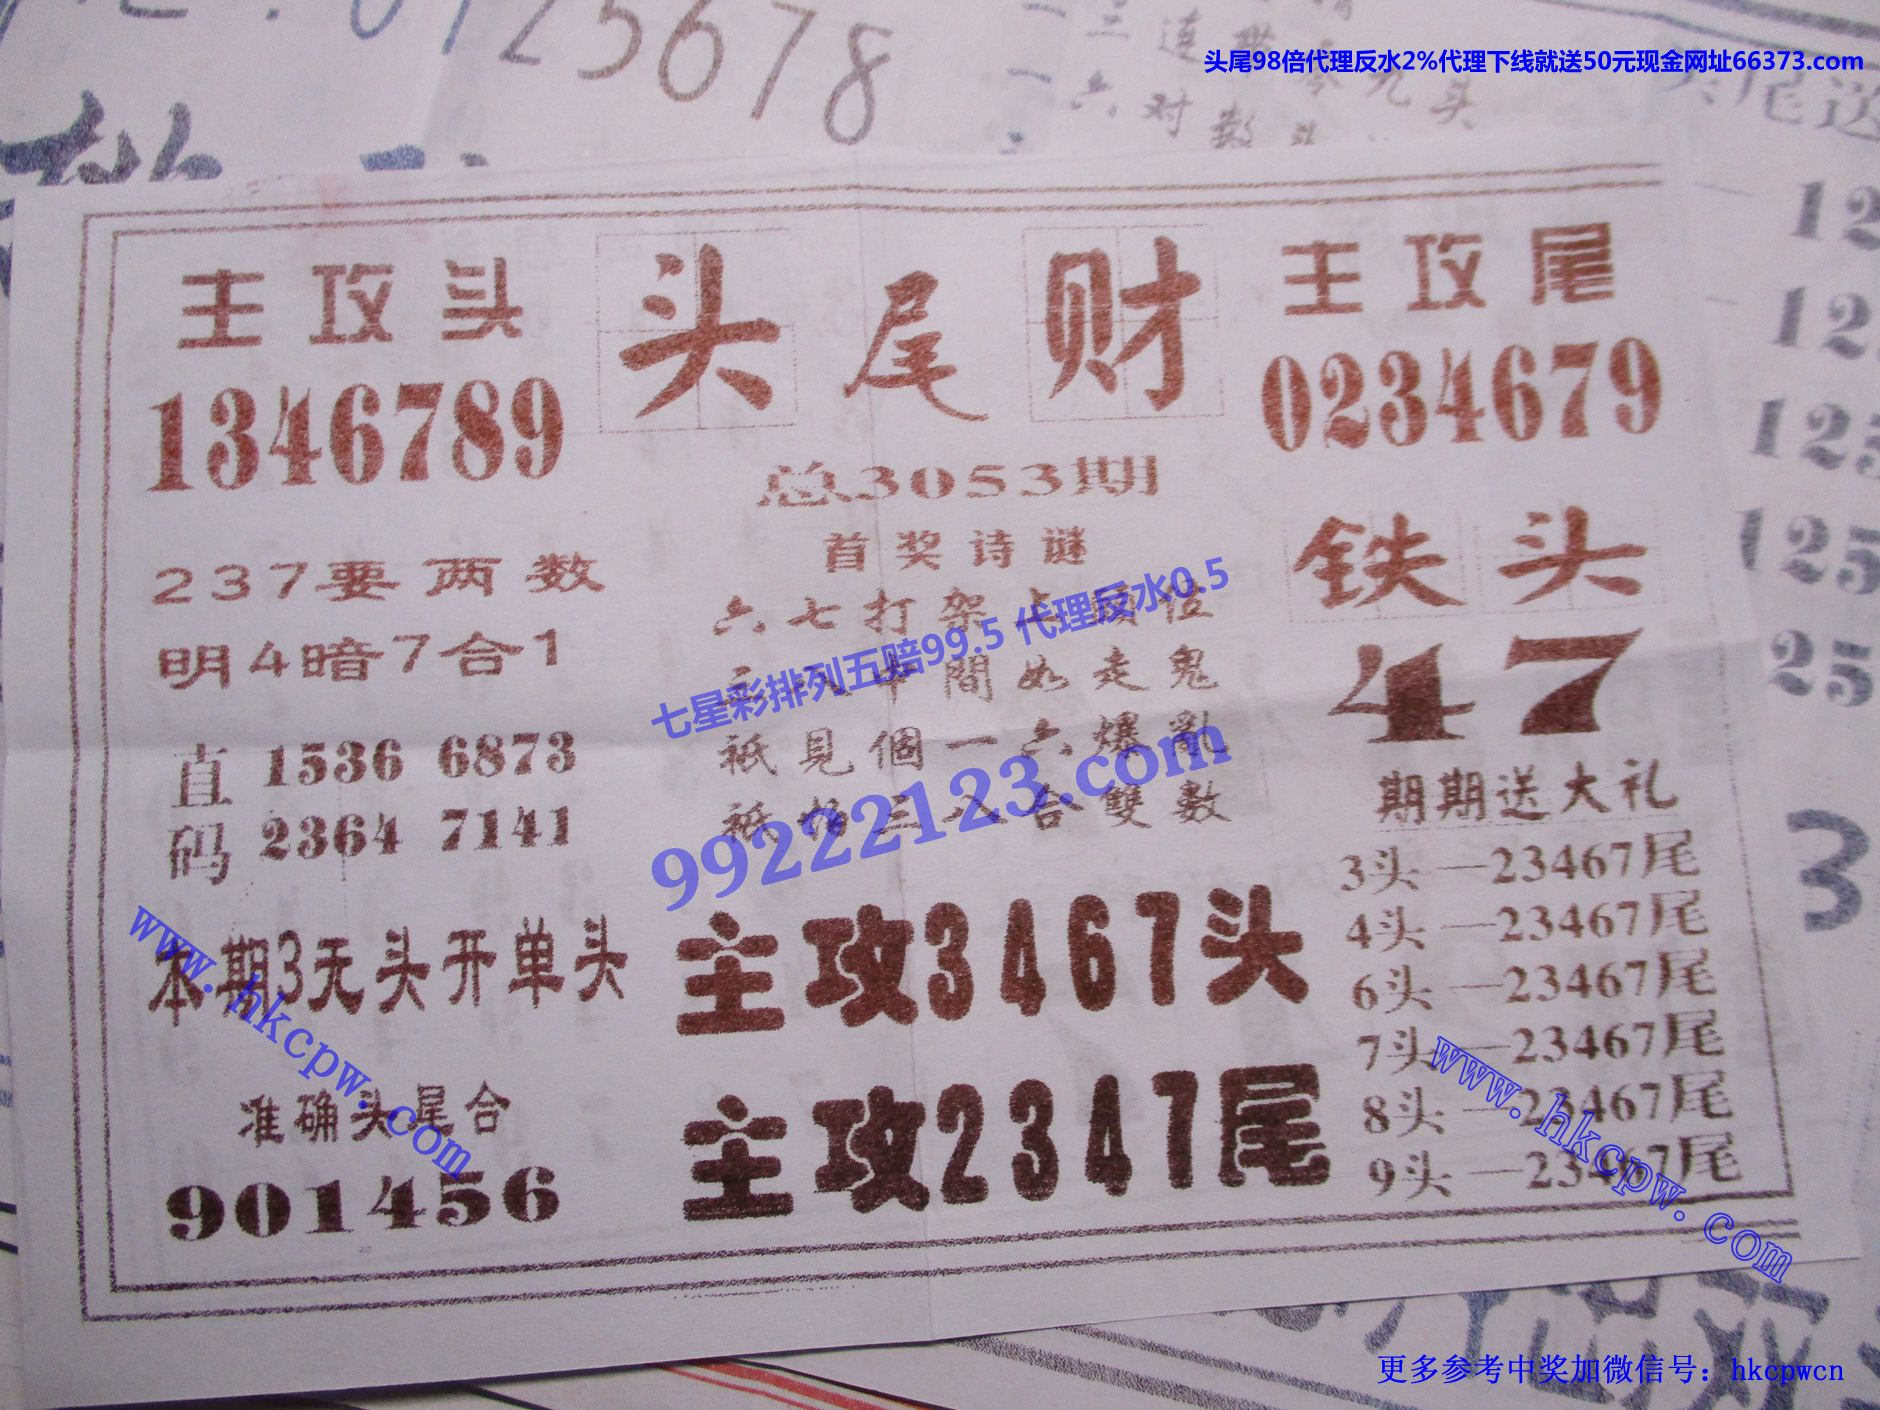 0125678
头尾98倍代理反水2%代理下线就送50元现金网址66373.com
六对数头
尾送
主攻头
1346789
头尾财
主攻尾
0234679
总3053期
首奖诗谜
六七打架占头位
中間如走鬼
祗見個一六爆亂
祗 三八合雙數
237要两数
明4暗7合1
直码
1536 6873
2364 7141
铁头
47
期期送大礼
3头—23467尾
4头—23467尾
6头—23467尾
7头—23467尾
8头—23467尾
9头—23467尾
本期3无头开单头
准确头尾合
901456
主攻3467头
主攻2347尾
125
125
25
3
七星彩排列五赔99.5 代理反水0.5
99222123.com
www.hkcpw.com
www.hkcpw.com
更多参考中奖加微信号：hkcpwcn